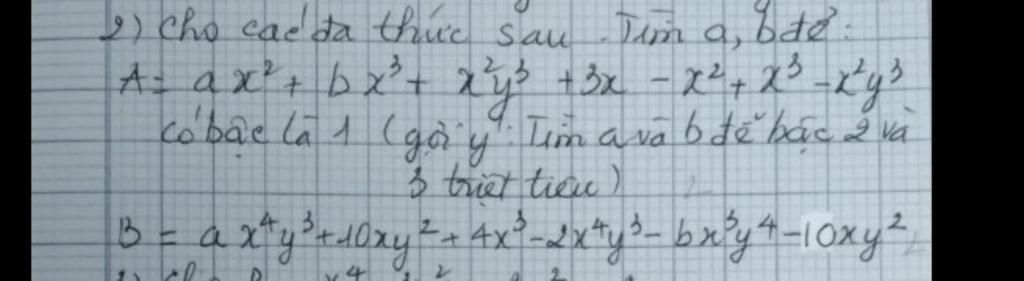 2) Cho các đa thức sau. Tìm a, b để:
A = ax² + bx³ + x²y³ + 3x - x² + x³ - x²y³
có bậc là 1 (gợi ý: Tìm a và b để bậc 2 và
3 triệt tiêu)
B = ax⁴y³ + 10xy² + 4x³ - 2x⁴y³ - bx³y⁴ - 10xy²